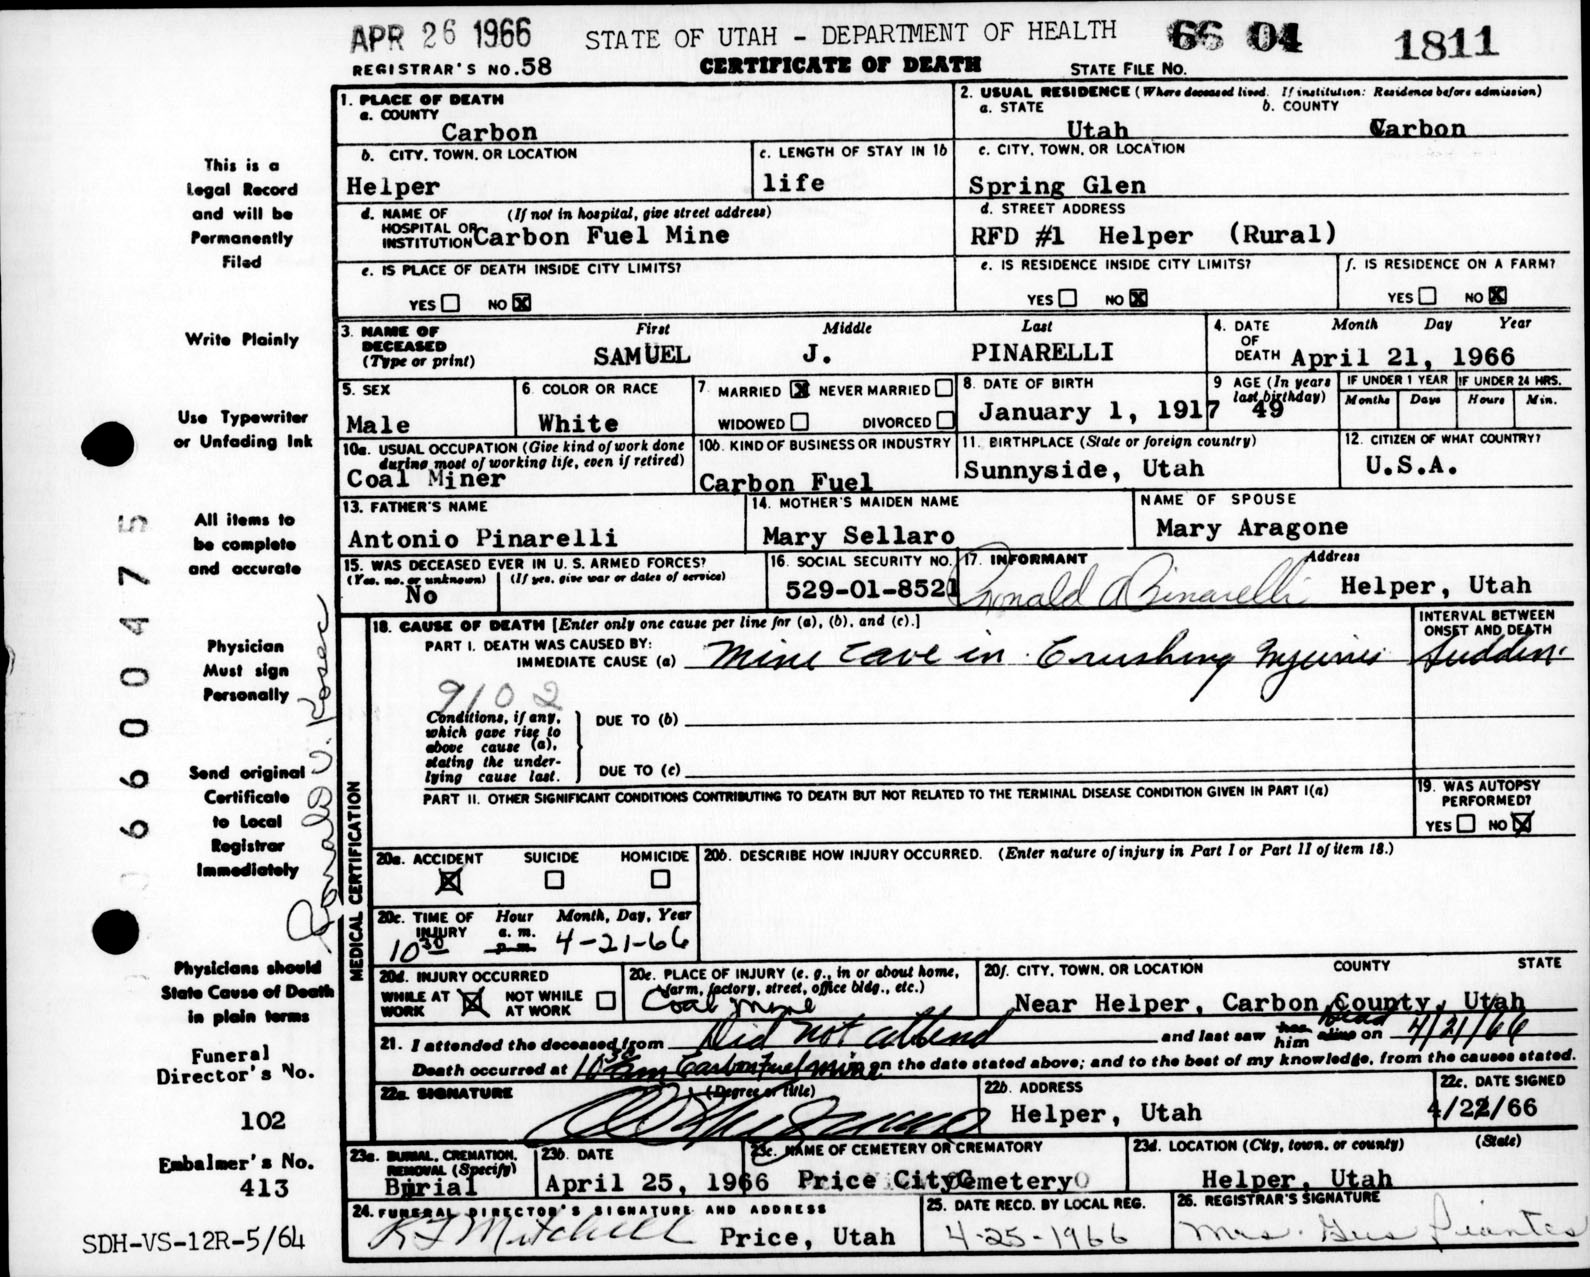 APR 26 1966 STATE OF UTAH - DEPARTMENT OF HEALTH 66 04 1811
REGISTRAR'S NO. 58 CERTIFICATE OF DEATH STATE FILE NO.
1. PLACE OF DEATH
a. COUNTY
Carbon
2. USUAL RESIDENCE (Where deceased lived. If institution: Residence before admission)
a. STATE b. COUNTY
Utah Carbon
b. CITY, TOWN, OR LOCATION
Helper
c. LENGTH OF STAY IN 1b
life
c. CITY, TOWN, OR LOCATION
Spring Glen
d. NAME OF (If not in hospital, give street address)
HOSPITAL OR
INSTITUTION Carbon Fuel Mine
d. STREET ADDRESS
RFD #1 Helper (Rural)
e. IS PLACE OF DEATH INSIDE CITY LIMITS?
YES NO X
e. IS RESIDENCE INSIDE CITY LIMITS?
YES NO X
f. IS RESIDENCE ON A FARM?
YES NO X
3. NAME OF First Middle Last
DECEASED
(Type or print) SAMUEL J. PINARELLI
4. DATE Month Day Year
OF
DEATH April 21, 1966
5. SEX
Male
6. COLOR OR RACE
White
7. MARRIED X NEVER MARRIED
WIDOWED DIVORCED
8. DATE OF BIRTH
January 1, 1917
9 AGE (In years
last birthday)
49
IF UNDER 1 YEAR IF UNDER 24 HRS.
Months Days Hours Min.
10a. USUAL OCCUPATION (Give kind of work done
during most of working life, even if retired)
Coal Miner
10b. KIND OF BUSINESS OR INDUSTRY
Carbon Fuel
11. BIRTHPLACE (State or foreign country)
Sunnyside, Utah
12. CITIZEN OF WHAT COUNTRY?
U.S.A.
13. FATHER'S NAME
Antonio Pinarelli
14. MOTHER'S MAIDEN NAME
Mary Sellaro
NAME OF SPOUSE
Mary Aragone
15. WAS DECEASED EVER IN U. S. ARMED FORCES?
(Yes, no, or unknown) (If yes, give war or dates of service)
No
16. SOCIAL SECURITY NO.
529-01-8521
17. INFORMANT Address
Ronald A Pinarelli Helper, Utah
18. CAUSE OF DEATH [Enter only one cause per line for (a), (b), and (c).]
INTERVAL BETWEEN
ONSET AND DEATH
PART I. DEATH WAS CAUSED BY:
IMMEDIATE CAUSE (a) Mine cave in. Crushing Injuries Sudden.
9102
Conditions, if any,
which gave rise to
above cause (a),
stating the under-
lying cause last.
DUE TO (b)
DUE TO (c)
PART II. OTHER SIGNIFICANT CONDITIONS CONTRIBUTING TO DEATH BUT NOT RELATED TO THE TERMINAL DISEASE CONDITION GIVEN IN PART I(a)
19. WAS AUTOPSY
PERFORMED?
YES NO X
MEDICAL CERTIFICATION
20a. ACCIDENT SUICIDE HOMICIDE
X
20b. DESCRIBE HOW INJURY OCCURRED. (Enter nature of injury in Part I or Part II of item 18.)
20c. TIME OF Hour Month, Day, Year
INJURY a. m.
10 30 p.m. 4-21-66
20d. INJURY OCCURRED
WHILE AT X NOT WHILE
WORK AT WORK
20e. PLACE OF INJURY (e. g., in or about home,
farm, factory, street, office bldg., etc.)
Coal Mine
20f. CITY, TOWN, OR LOCATION COUNTY STATE
Near Helper, Carbon County, Utah
21. I attended the deceased from Did not attend and last saw her him alive Dead on 4/21/66
Death occurred at 10 30 am Carbon Fuel Mine on the date stated above; and to the best of my knowledge, from the causes stated.
22a. SIGNATURE (Degree or title)
22b. ADDRESS
Helper, Utah
22c. DATE SIGNED
4/22/66
23a. BURIAL, CREMATION,
REMOVAL (Specify)
Burial
23b. DATE
April 25, 1966
23c. NAME OF CEMETERY OR CREMATORY
Price City Cemetery
23d. LOCATION (City, town, or county) (State)
Helper, Utah
24. FUNERAL DIRECTOR'S SIGNATURE AND ADDRESS
R F Mitchell Price, Utah
25. DATE RECD. BY LOCAL REG.
4-25-1966
26. REGISTRAR'S SIGNATURE
Mrs. Gus
This is a
Legal Record
and will be
Permanently
Filed
Write Plainly
Use Typewriter
or Unfading Ink
All items to
be complete
and accurate
Physician
Must sign
Personally
Send original
Certificate
to Local
Registrar
Immediately
Physicians should
State Cause of Death
in plain terms
Funeral
Director's No.
102
Embalmer's No.
413
SDH-VS-12R-5/64
6600475